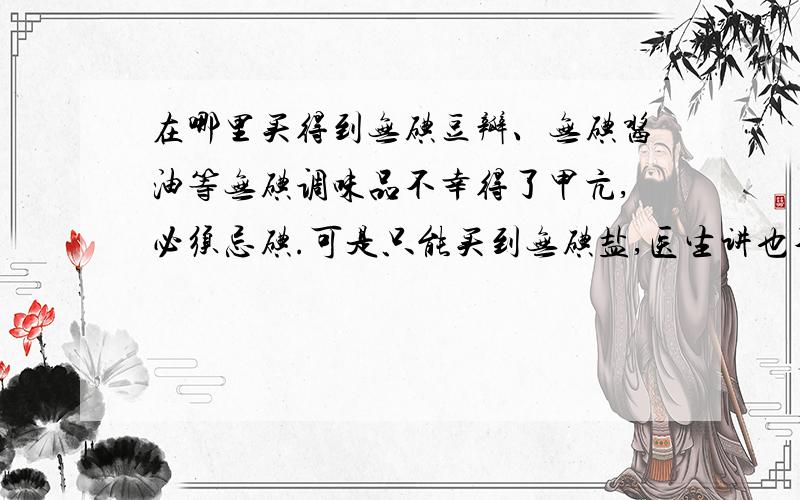 在哪里买得到无碘豆瓣、无碘酱
油等无碘调味品不幸得了甲亢,
必须忌碘.可是只能买到无碘盐,医生讲也